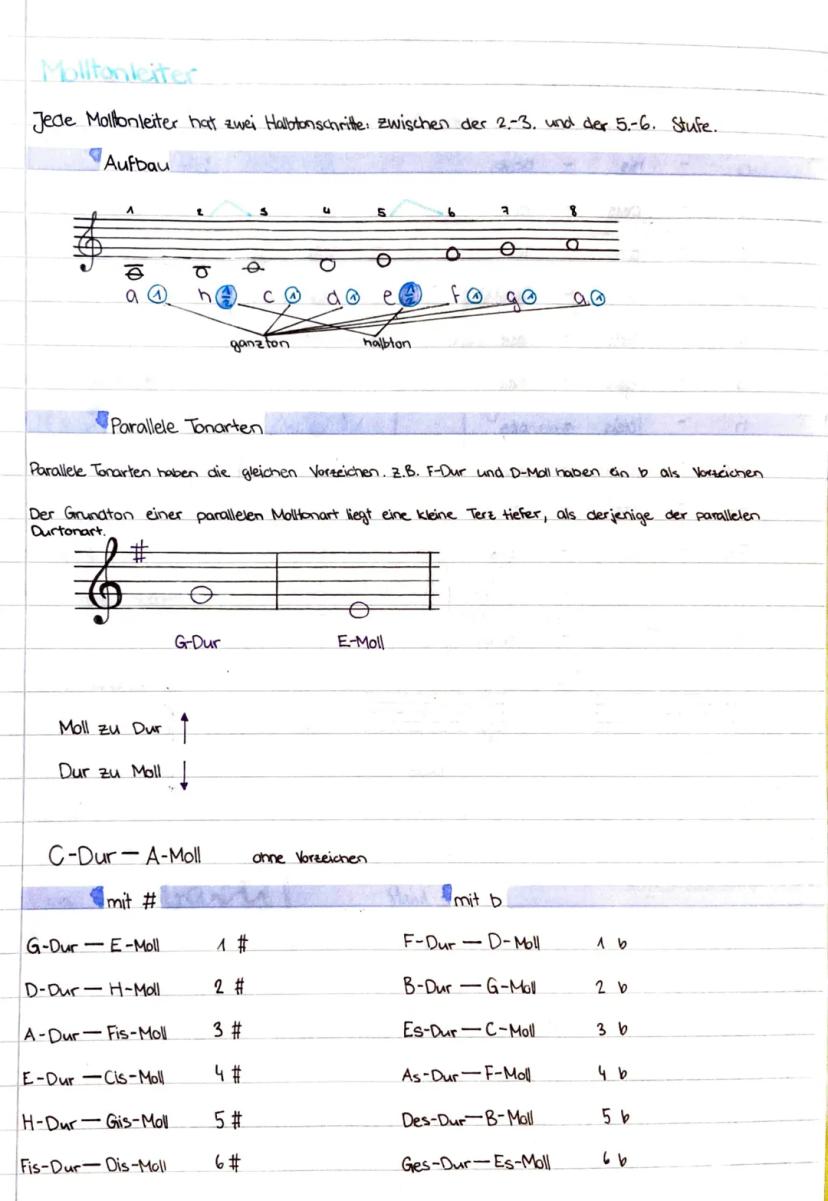 Molltonleiter
Jede Molltonleiter hat zwei Halbtonschritte: zwischen der 2.-3. und der 5.-6. Stufe.
Aufbau
1 2 3 4 5 6 7 8
a 1 h 1/2 c 1 d 1 e 1/2 f 1 g 1 a 1
ganzton halbton
Parallele Tonarten
Parallele Tonarten haben die gleichen Vorzeichen. z.B. F-Dur und D-Moll haben ein b als Vorzeichen
Der Grundton einer parallelen Molltonart liegt eine kleine Terz tiefer, als derjenige der parallelen
Durtonart.
#
G-Dur E-Moll
Moll zu Dur ↑
Dur zu Moll ↓
C-Dur — A-Moll ohne Vorzeichen
mit # mit b
G-Dur — E-Moll 1 # F-Dur — D-Moll 1 b
D-Dur — H-Moll 2 # B-Dur — G-Moll 2 b
A-Dur — Fis-Moll 3 # Es-Dur — C-Moll 3 b
E-Dur — Cis-Moll 4 # As-Dur — F-Moll 4 b
H-Dur — Gis-Moll 5 # Des-Dur — B-Moll 5 b
Fis-Dur — Dis-Moll 6 # Ges-Dur — Es-Moll 6 b